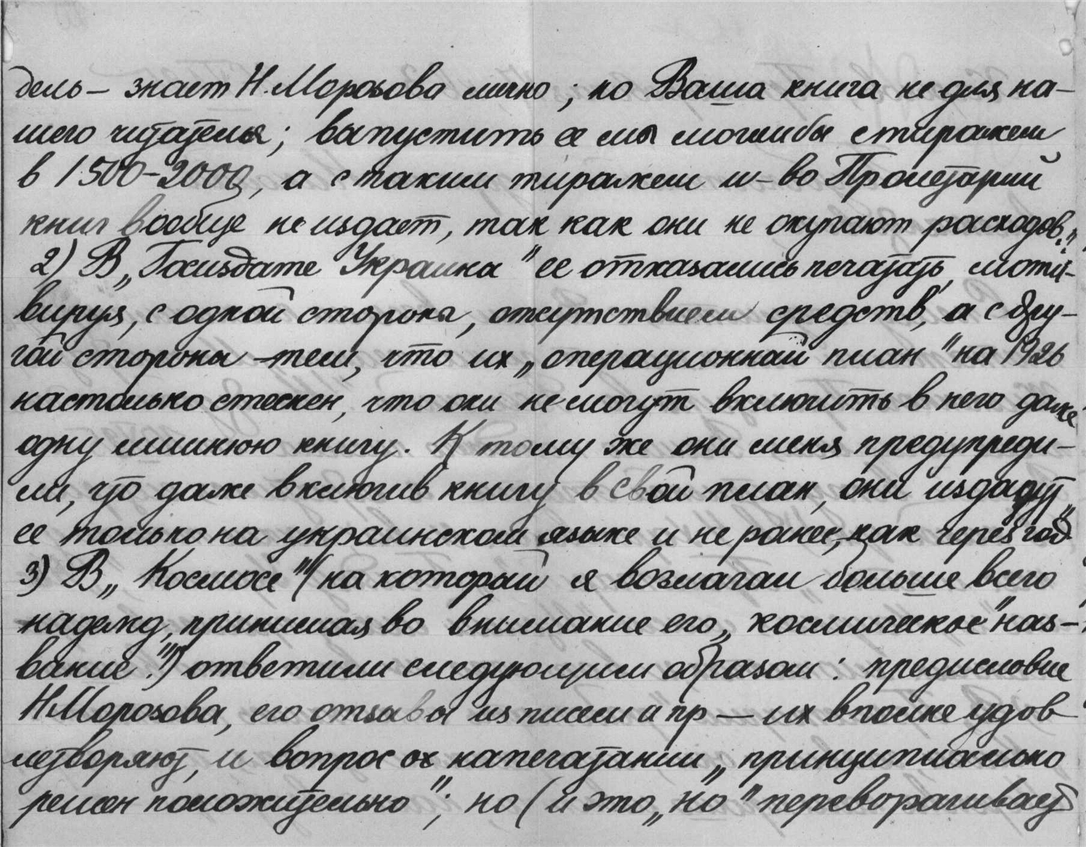 дель — знает Н. Морозова лично; но Ваша книга не для на-
шего читателя; выпустить ее мы могли бы с тиражем
в 1500-2000, а с таким тиражем и-во Пролетарий
книг вообще не издает, так как они не окупают расходов."
2) В „Госиздате Украина" ее отказались печатать, моти-
вируя, с одной стороны, отсутствием средств, а с дру-
гой стороны — тем, что их „операционный план" на 1926
настолько стеснен, что они не могут включить в него даже
одну лишнюю книгу. К тому же они меня предупреди-
ли, что даже включив книгу в свой план, они издадут
ее только на украинском языке и не ранее, как через год
3) В „Космосе" (на который я возлагал больше всего
надежд, принимая во внимание его „космическое" наз-
вание!) ответили следующим образом: предисловие
Н. Морозова, его отзывы из писем и пр — их вполне удов
летворяют, и вопрос о напечатании „принципиально
решен положительно"; но (и это „но" переворачивает